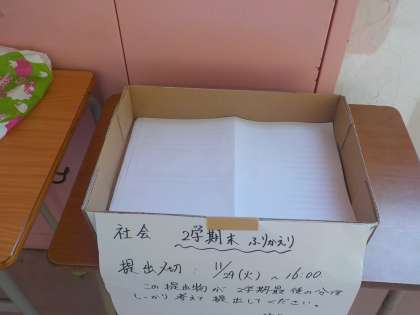 社会 2学期末 ふりかえり
提出〆切 : 11/29(火) 〜 16:00
この提出物が 2学期最後の分です
しっかり考えて提出してください。